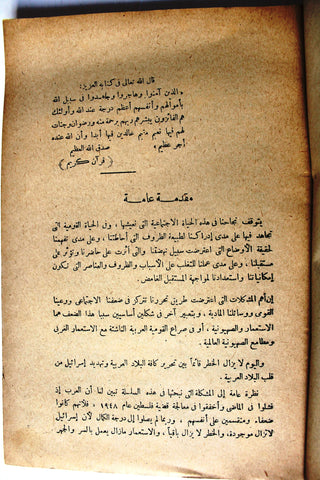 قال الله تعالى فى كتابه العزيز:
«الذين آمنوا وهاجروا وجاهدوا فى سبيل الله
بأموالهم وأنفسهم أعظم درجة عند الله وأولئك
هم الفائزون يبشرهم ربهم برحمة منه ورضوان وجنات
لهم فيها نعيم مقيم خالدين فيها أبدا وأن الله عنده
أجر عظيم»
صدق الله العظيم
( قرآن كريم )
مقدمة عامة
يتوقف نجاحنا فى هذه الحياة الاجتماعية التى نعيشها ، وفى الحياة القومية التى
نجاهد فيها على مدى إدراكنا لطبيعة الظروف التى أحاطتنا ، وعلى مدى تفهمنا
لحقيقة الأوضاع التى اعترضت سبيل نهضتنا والتى أثرت على حاضرنا وتؤثر على
مستقبلنا ، وعلى مدى عملنا للتغلب على الأسباب والظروف والعناصر التى تكون
إمكانياتنا واستعداداتنا لمواجهة المستقبل الغامض.
إن أهم المشكلات التى اعترضت طريق تحررنا تتركز فى ضعفنا الاجتماعى ووعينا
القومى ووسائلنا المادية ، وبتعبير آخر فى شكلين أساسيين سببا هذا الضعف هما
الاستعمار والصهيونية ، أو فى صراع القومية العربية الناشئة مع الاستعمار الغربى
ومطامع الصهيونية العالمية .
واليوم لا يزال الخطر قائماً بين تحرير كافة البلاد العربية وتهديد إسرائيل من
قلب البلاد العربية .
نظرة عامة إلى المشكلة التى نبحثها فى هذه السلسلة تبين لنا أن العرب إذ
فشلوا فى الماضى وأخفقوا فى معالجة قضية فلسطين عام ١٩٤٨ ، فلأنهم كانوا
ضعفاء ، ومنقسمين على أنفسهم ، وربما لم يصلوا إلى درجة الكمال لأن إسرائيل
لاتزال موجودة، والخطر لا يزال باقياً ، والاستعمار مازال يعمل بالسر والجهر